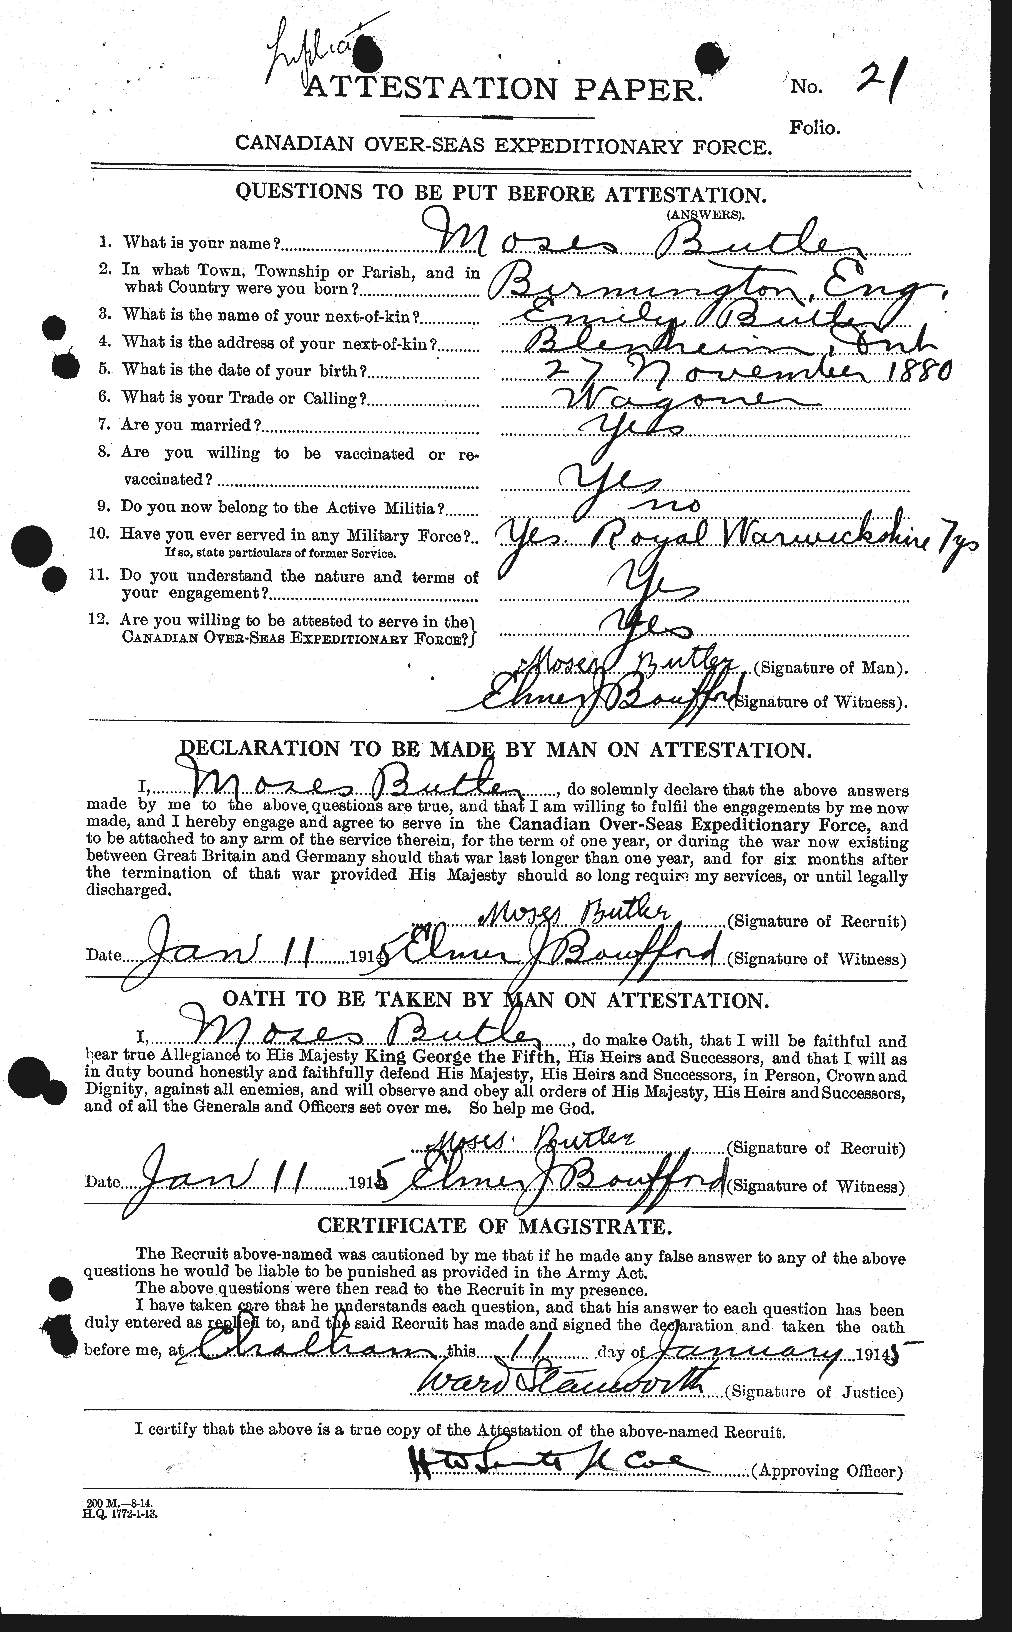 Duplicate
ATTESTATION PAPER.
No. 21
Folio.
CANADIAN OVER-SEAS EXPEDITIONARY FORCE.
QUESTIONS TO BE PUT BEFORE ATTESTATION.
(ANSWERS).
1. What is your name? Moses Butler
2. In what Town, Township or Parish, and in
what Country were you born? Birmington, Eng.
3. What is the name of your next-of-kin? Emily Butler
4. What is the address of your next-of-kin? Blenheim, Ont
5. What is the date of your birth? 27 November 1880
6. What is your Trade or Calling? Wagoner
7. Are you married? Yes
8. Are you willing to be vaccinated or re-
vaccinated? Yes
9. Do you now belong to the Active Militia? no
10. Have you ever served in any Military Force? Yes. Royal Warwickshire 7 ys
If so, state particulars of former Service.
11. Do you understand the nature and terms of
your engagement? Yes
12. Are you willing to be attested to serve in the
CANADIAN OVER-SEAS EXPEDITIONARY FORCE? Yes
Moses Butler (Signature of Man).
Elmer J Boufford (Signature of Witness).
DECLARATION TO BE MADE BY MAN ON ATTESTATION.
I, Moses Butler, do solemnly declare that the above answers
made by me to the above questions are true, and that I am willing to fulfil the engagements by me now
made, and I hereby engage and agree to serve in the Canadian Over-Seas Expeditionary Force, and
to be attached to any arm of the service therein, for the term of one year, or during the war now existing
between Great Britain and Germany should that war last longer than one year, and for six months after
the termination of that war provided His Majesty should so long require my services, or until legally
discharged.
Moses Butler (Signature of Recruit)
Date Jan 11 1915 Elmer J Boufford (Signature of Witness)
OATH TO BE TAKEN BY MAN ON ATTESTATION.
I, Moses Butler, do make Oath, that I will be faithful and
bear true Allegiance to His Majesty King George the Fifth, His Heirs and Successors, and that I will as
in duty bound honestly and faithfully defend His Majesty, His Heirs and Successors, in Person, Crown and
Dignity, against all enemies, and will observe and obey all orders of His Majesty, His Heirs and Successors,
and of all the Generals and Officers set over me. So help me God.
Moses. Butler (Signature of Recruit)
Date Jan 11 1915 Elmer J Boufford (Signature of Witness)
CERTIFICATE OF MAGISTRATE.
The Recruit above-named was cautioned by me that if he made any false answer to any of the above
questions he would be liable to be punished as provided in the Army Act.
The above questions were then read to the Recruit in my presence.
I have taken care that he understands each question, and that his answer to each question has been
duly entered as replied to, and the said Recruit has made and signed the declaration and taken the oath
before me, at Chatham this 11 day of January 1915
Ward Stanworth (Signature of Justice)
I certify that the above is a true copy of the Attestation of the above-named Recruit.
(Approving Officer)
200 M.—8-14.
H.Q. 1772-1-13.